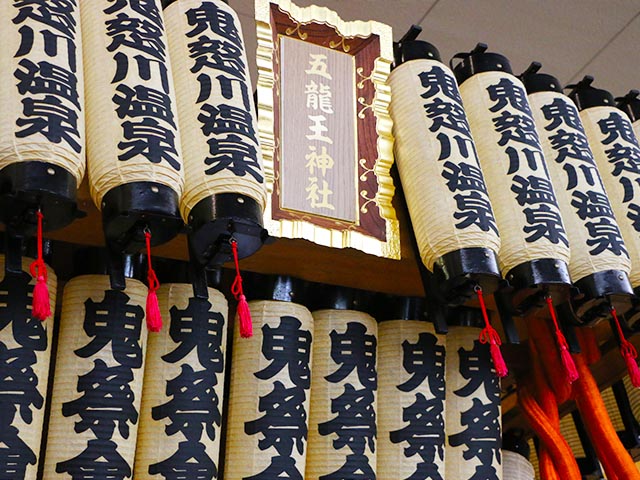 鬼怒川温泉
鬼怒川温泉
鬼怒川温泉
五龍王神社
鬼怒川温泉
鬼怒川温泉
鬼怒川温泉
鬼怒川温泉
祭会
鬼祭会
鬼祭会
鬼祭会
鬼祭会
鬼祭会
鬼祭会